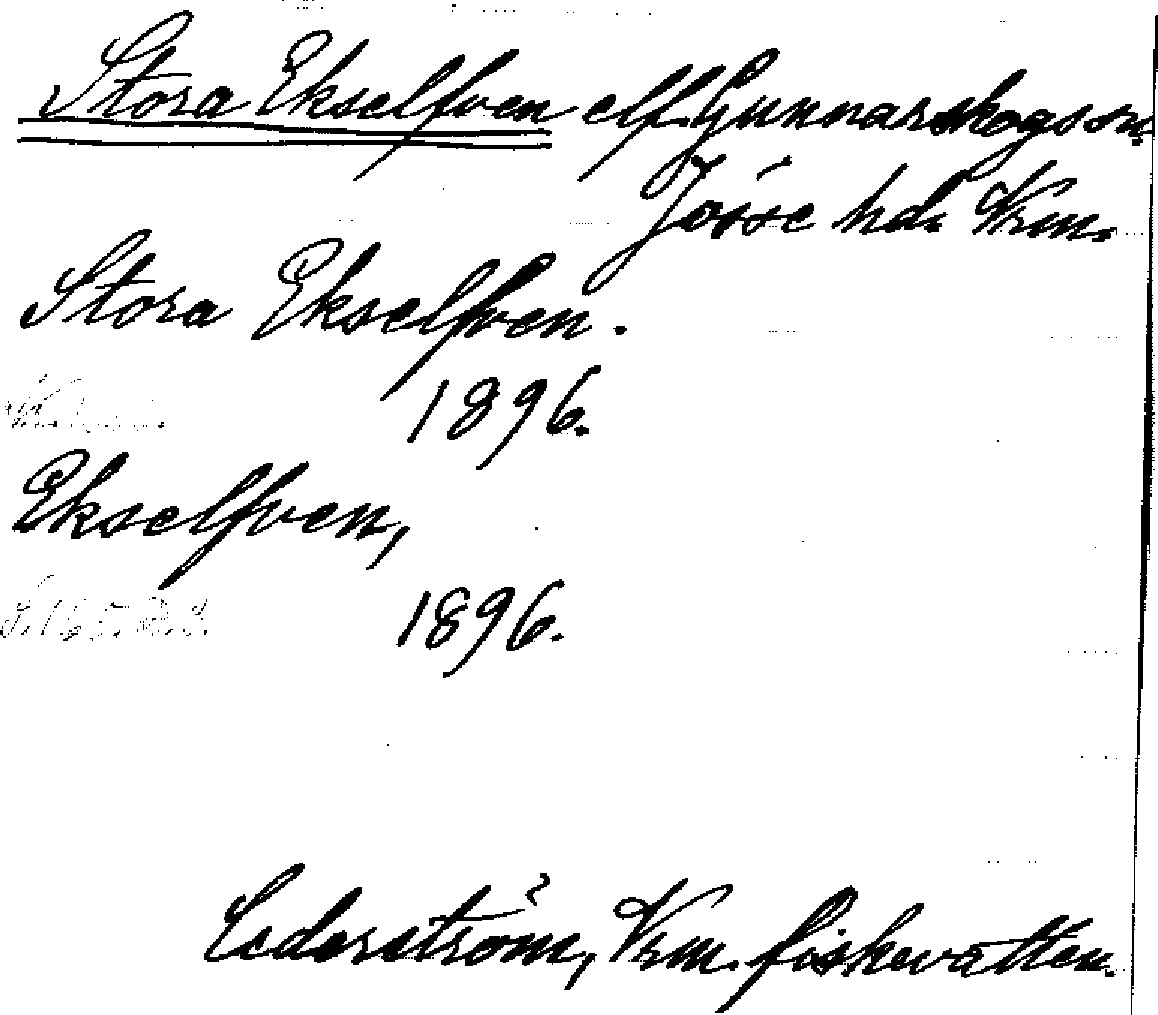 Stora Ekselfven elf. Gunnarskogs sn.
Jösse hd. Vrm.
Stora Ekselfven.
1896.
Ekselfven,
1896.
Cederström, Vrm. fiskevatten.